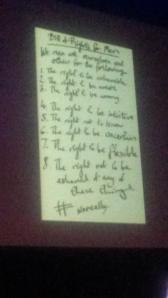 Bill of Rights for Men
We men ask ourselves and
other for the following:
1. The right to be vulnerable
2. The right to be weak
3. The right to be wrong
4. The right to be intuitive
5. The right not to know
6. The right to be uncertain
7. The right to be flexible
8. The right not to be
ashamed of any of
these things
#